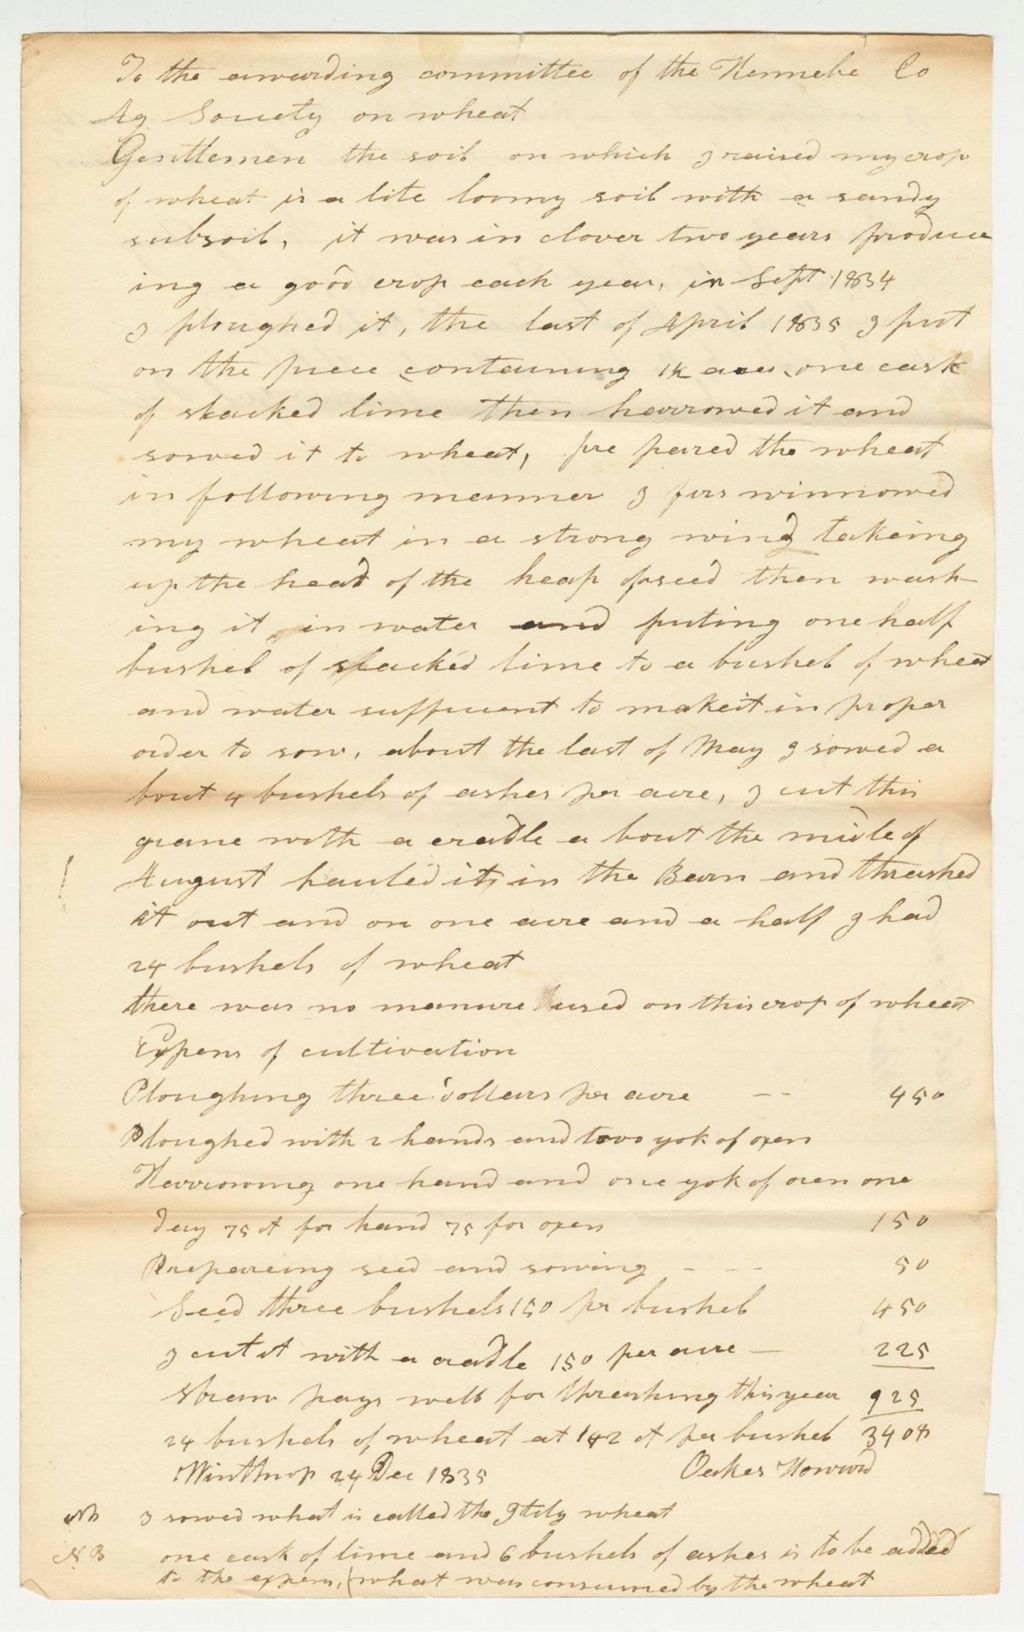 To the awarding committee of the Kennebe Co
Ag Society on wheat
Gentlemen the soil on which I raised my crop
of wheat is a lite loomy soil with a sandy
subsoil, it was in clover two years produce
ing a good crop each year, in Sept 1834
I ploughed it, the last of April 1835 I put
on the piece containing 1½ acres, one cask
of slacked lime then harrowed it and
sowed it to wheat, pre pared the wheat
in following manner I firs winnowed
my wheat in a strong wind takeing
up the head of the heap of seed then wash
ing it in water and puting one half
bushel of slacked lime to a bushel of wheat
and water suffucent to make it in proper
order to sow. about the last of May I sowed a
bout 4 bushels of ashes per acre, I cut this
grane with a cradle a bout the midle of
August hauled it in the Barn and thrashed
it out and on one acre and a half I had
24 bushels of wheat
there was no manure used on this crop of wheat
Expens of cultivation
Ploughing three dollars per acre -- 450
Ploughed with 2 hands and two yok of oxen
Harrowing one hand and one yok of oxen one
day 75 ct for hand 75 for oxen 150
Prepareing seed and sowing - - - 50
Seed three bushels 150 pr bushel 450
I cut it with a cradle 150 per acre — 225
Straw pays well for thrashing this year 925
24 bushels of wheat at 142 ct per bushel 3408
Winthrop 24 Dec 1835 Oakes Howard
NB I sowed what is called the Itily wheat
NB one cask of lime and 6 bushels of ashes is to be added
to the expens, (what was consumed by the wheat